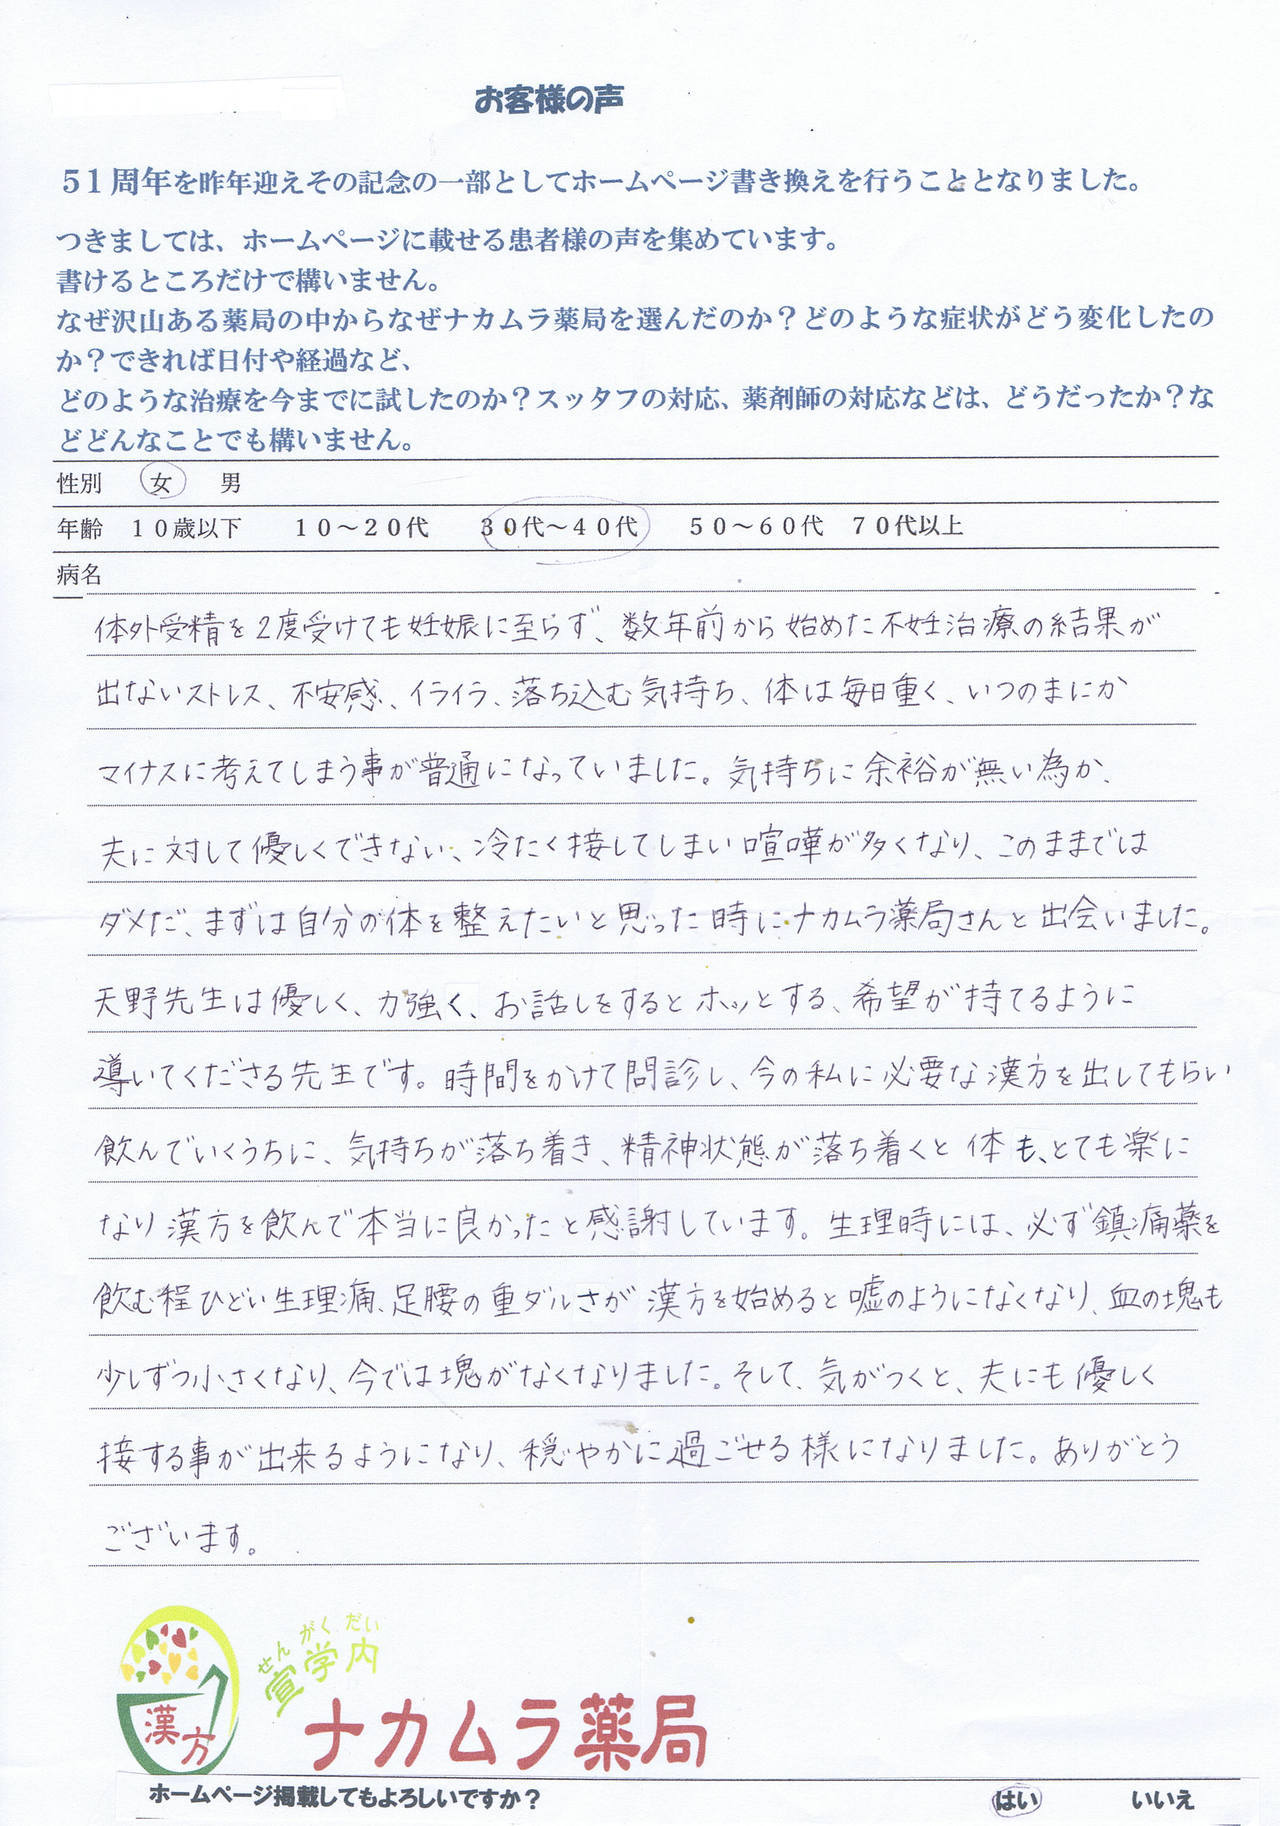 お客様の声
51周年を昨年迎えその記念の一部としてホームページ書き換えを行うこととなりました。
つきましては、ホームページに載せる患者様の声を集めています。
書けるところだけで構いません。
なぜ沢山ある薬局の中からなぜナカムラ薬局を選んだのか？どのような症状がどう変化したの
か？できれば日付や経過など、
どのような治療を今までに試したのか？スッタフの対応、薬剤師の対応などは、どうだったか？な
どどんなことでも構いません。
性別 女 男
年齢 10歳以下 10～20代 30代～40代 50～60代 70代以上
病名
体外受精を2度受けても妊娠に至らず、数年前から始めた不妊治療の結果が
出ないストレス、不安感、イライラ、落ち込む気持ち、体は毎日重く、いつのまにか
マイナスに考えてしまう事が普通になっていました。気持ちに余裕が無い為か、
夫に対して優しくできない、冷たく接してしまい喧嘩が多くなり、このままでは
ダメだ、まずは自分の体を整えたいと思った時にナカムラ薬局さんと出会いました。
天野先生は優しく、力強く、お話しをするとホッとする、希望が持てるように
導いてくださる先生です。時間をかけて問診し、今の私に必要な漢方を出してもらい
飲んでいくうちに、気持ちが落ち着き、精神状態が落ち着くと体も、とても楽に
なり漢方を飲んで本当に良かったと感謝しています。生理時には、必ず鎮痛薬を
飲む程ひどい生理痛、足腰の重ダルさが漢方を始めると嘘のようになくなり、血の塊も
少しずつ小さくなり、今では塊がなくなりました。そして、気がつくと、夫にも優しく
接する事が出来るようになり、穏やかに過ごせる様になりました。ありがとう
ございます。
せんがくだい
宣学内
漢方
ナカムラ薬局
ホームページ掲載してもよろしいですか？ はい いいえ